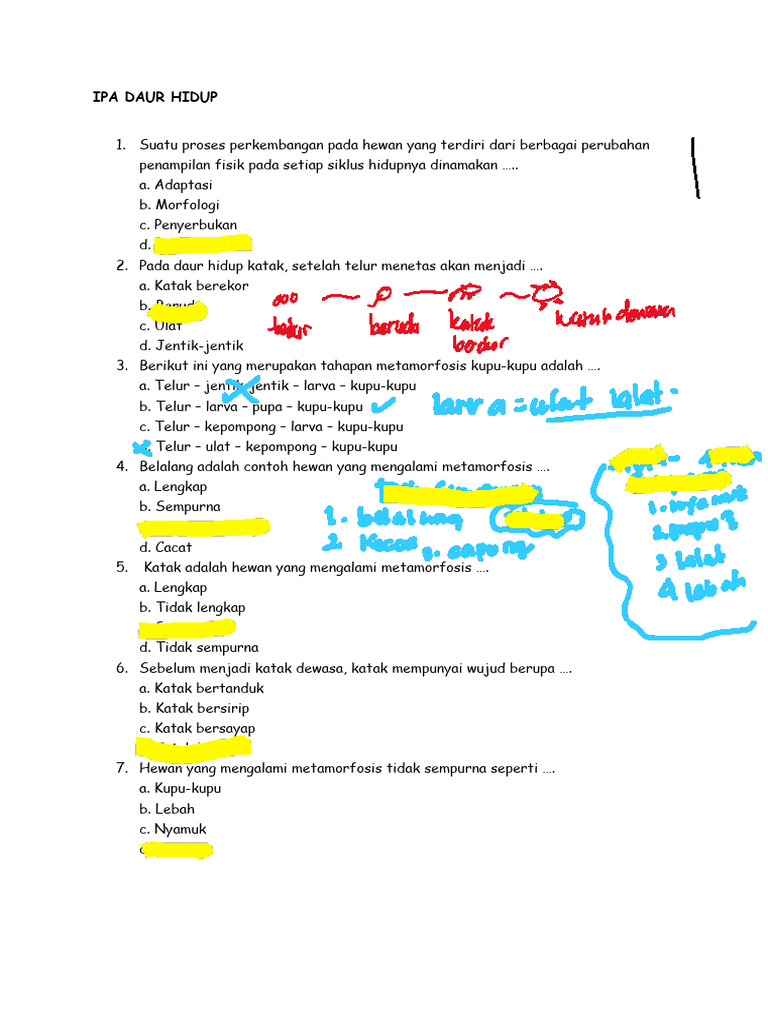 IPA DAUR HIDUP
1. Suatu proses perkembangan pada hewan yang terdiri dari berbagai perubahan
penampilan fisik pada setiap siklus hidupnya dinamakan .....
a. Adaptasi
b. Morfologi
c. Penyerbukan
d.
2. Pada daur hidup katak, setelah telur menetas akan menjadi ....
a. Katak berekor
b.
c. Ulat
d. Jentik-jentik
telur
beruda
katak
katak dewasa
3. Berikut ini yang merupakan tahapan metamorfosis kupu-kupu adalah ....
a. Telur – jentik-jentik – larva – kupu-kupu
b. Telur – larva – pupa – kupu-kupu
c. Telur – kepompong – larva – kupu-kupu
Telur – ulat – kepompong – kupu-kupu
larva = ulat lalat
4. Belalang adalah contoh hewan yang mengalami metamorfosis ....
a. Lengkap
b. Sempurna
d. Cacat
1. belalang
2. Kecoa
3. capung
1. nyamuk
3 lalat
4 lebah
5. Katak adalah hewan yang mengalami metamorfosis ....
a. Lengkap
b. Tidak lengkap
d. Tidak sempurna
6. Sebelum menjadi katak dewasa, katak mempunyai wujud berupa ....
a. Katak bertanduk
b. Katak bersirip
c. Katak bersayap
7. Hewan yang mengalami metamorfosis tidak sempurna seperti ....
a. Kupu-kupu
b. Lebah
c. Nyamuk